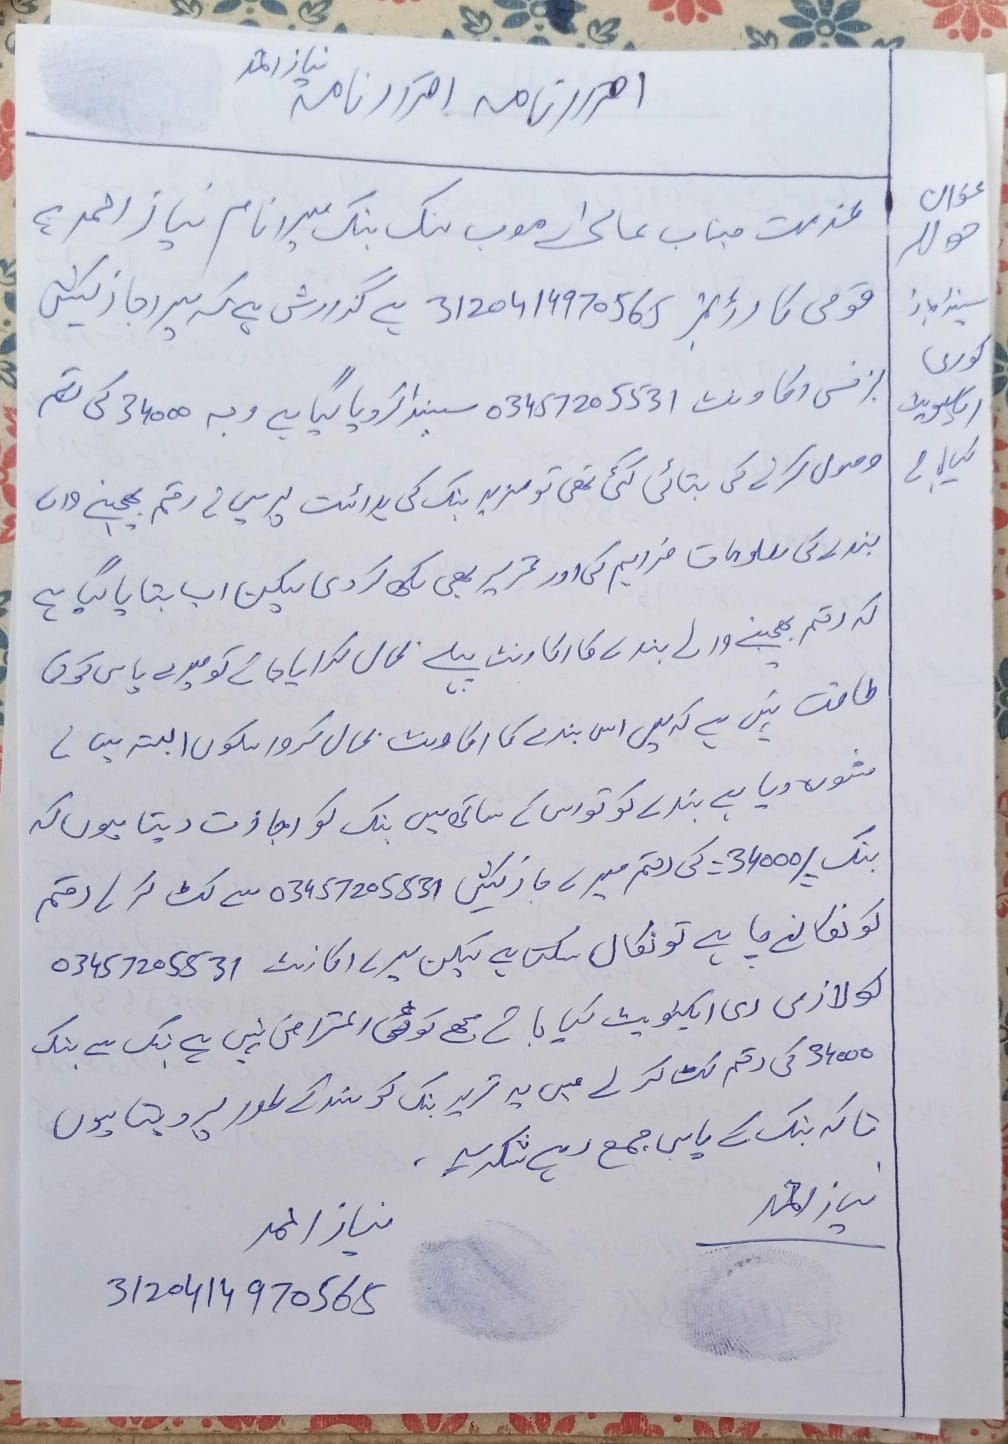 نیاز احمد
اقرار نامہ اقرار نامہ
عنوان
حوالہ
سینڈ اباؤ
فوری
ایکٹیویٹ
کیا جائے
بخدمت جناب عالی موب لنک بنک میرا نام نیاز احمد ہے
قومی کارڈ نمبر 3120414970565 ہے گذارش ہے کہ میرا جاز کیش
بزنس اکاونٹ 03457205531 سینڈ کر دیا گیا ہے وجہ 34000 کی رقم
وصول کرنے کی بتائی گئی تھی تو مزید بنک کی ہدائت پر میں نے رقم بھیجنے والے
بندے کی معلومات فراہم کی اور تحریر بھی لکھ کر دی لیکن اب بتایا گیا ہے
کہ رقم بھیجنے والے بندے کا اکاونٹ پہلے بحال کرایا جائے تو میرے پاس کوئی
طاقت نہیں ہے کہ میں اس بندے کا اکاونٹ بحال کروا سکوں البتہ میں نے
مشورہ دیا ہے بندے کو تو اس کے ساتھ میں بنک کو اجازت دیتا ہوں کہ
بنک 34000/= کی رقم میرے جاز کیش 03457205531 سے کٹ کر لے رقم
کو نکالنے چاہے تو نکال سکتی ہے لیکن میرے اکاونٹ 03457205531
کو لازمی ری ایکٹیویٹ کیا جائے مجھے کوئی اعتراض نہیں ہے بنک سے بنک
34000 کی رقم کٹ کر لے میں یہ تحریر بنک کو سند کے طور پر دیتا ہوں
تا کہ بنک کے پاس جمع رہے شکریہ ۔
نیاز احمد
نیاز احمد
3120414970565